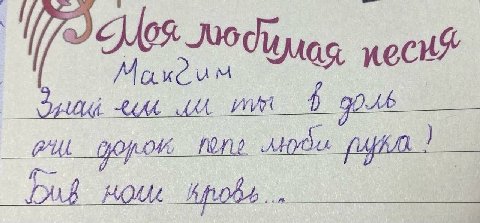 Моя любимая песня
МакSим
Знаи еш ли ты в доль
очи дорок пепе люби рука!
Бив нош кровь...